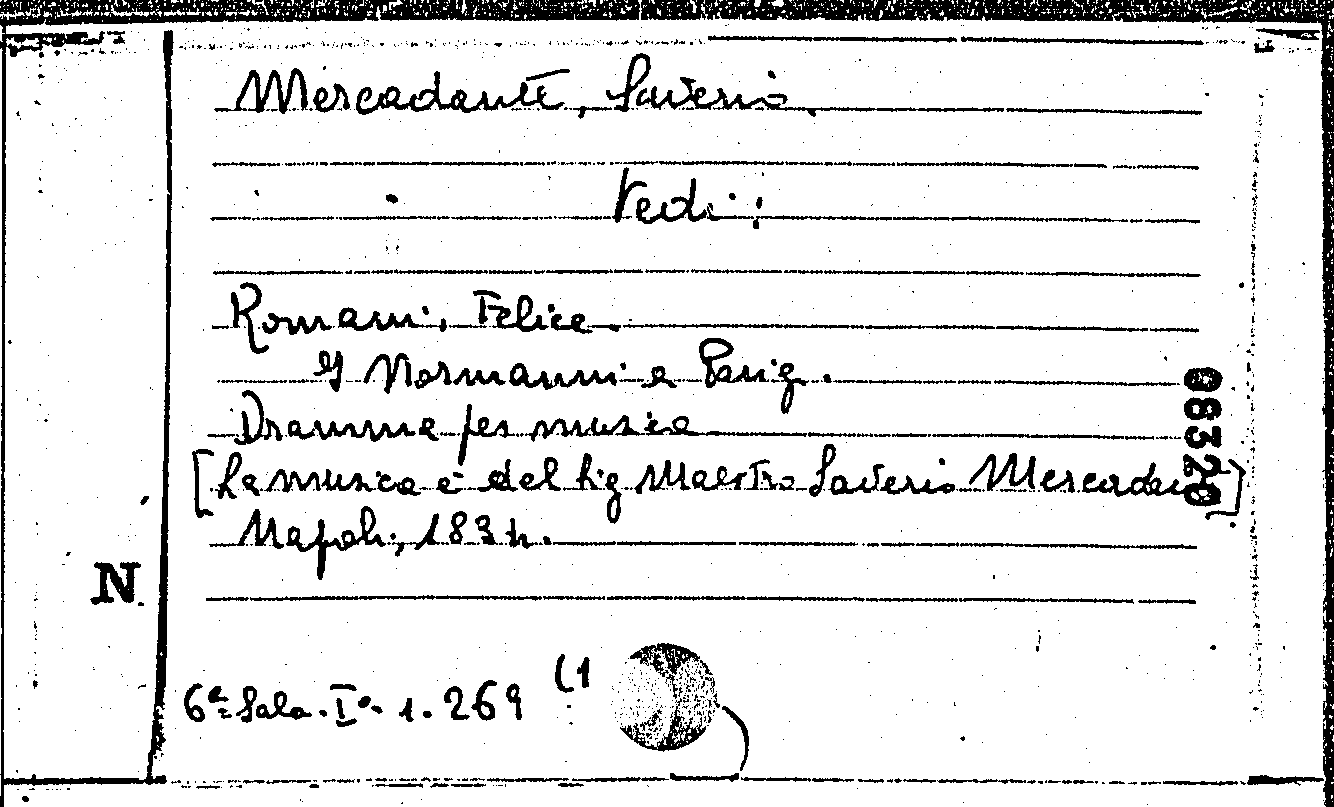 Mercadante, Saverio.
Vedi:
Romani, Felice.
I Normanni a Parigi.
Dramma per musica
[La musica è del Sig Maestro Saverio Mercadante]
Napoli, 1834.
08320
N
6ª Sala. Iº. 1. 269 (1